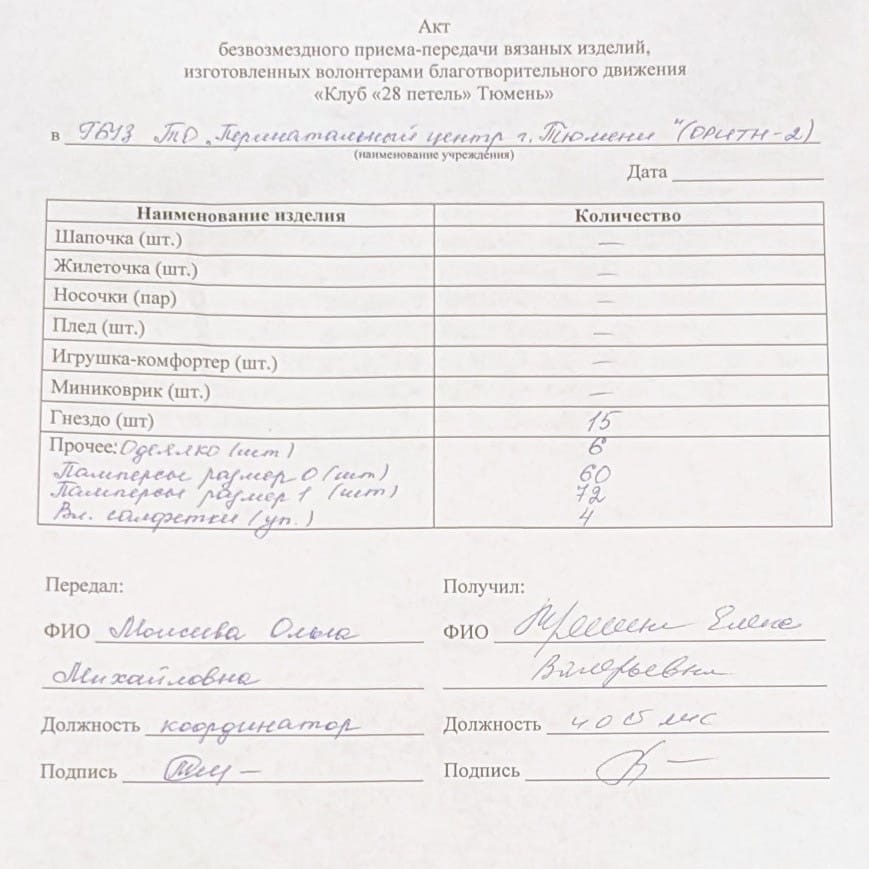 Акт
безвозмездного приема-передачи вязаных изделий,
изготовленных волонтерами благотворительного движения
«Клуб «28 петель» Тюмень»
в ГБУЗ ТО „Перинатальный центр г. Тюмени" (ОРИТН-2)
(наименование учреждения)
Дата
Наименование изделия Количество
Шапочка (шт.) —
Жилеточка (шт.) —
Носочки (пар) —
Плед (шт.) —
Игрушка-комфортер (шт.) —
Миниковрик (шт.) —
Гнездо (шт) 15
Прочее: Одеялко (шт) 6
Памперсы размер 0 (шт) 60
Памперсы размер 1 (шт) 72
Вл. салфетки (уп.) 4
Передал: Получил:
ФИО Моисеева Ольга ФИО Елена
Михайловна Валерьевна
Должность координатор Должность
Подпись Подпись